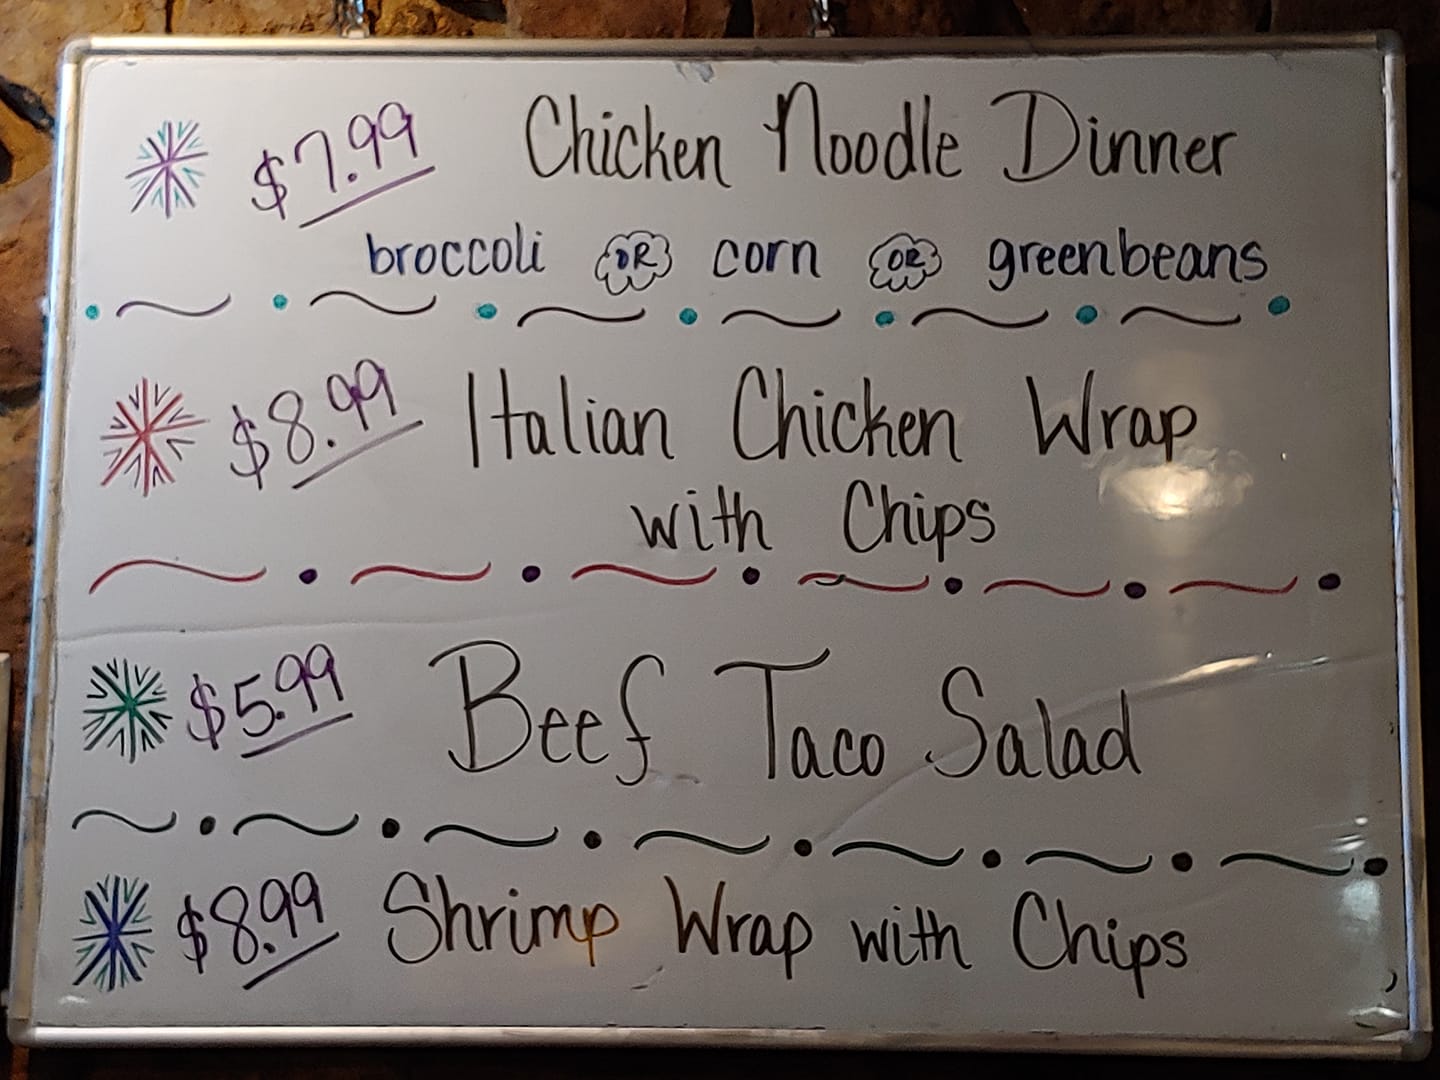 $7.99 Chicken Noodle Dinner
broccoli OR corn OR greenbeans
$8.99 Italian Chicken Wrap
with Chips
$5.99 Beef Taco Salad
$8.99 Shrimp Wrap with Chips